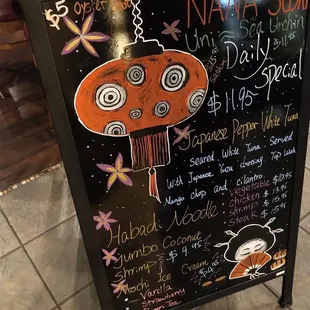 $5
oyster
NAMA
Uni - Sea Urchin
$ 11.95
Daily
Special
$ 11.95
Japanese Pepper White Tuna
Seared White Tuna Served
With Japanese Yuzu dressing Top with
Mango chop and cilantro.
Habachi Noodle
vegetable $ 13.95
chicken $ 15.95
shrimp $ 15.95
steak $ 15.95
Jumbo Coconut
Shrimp $ 9.95
Mochi Ice Cream
Vanilla
Strawberry
Green Tea